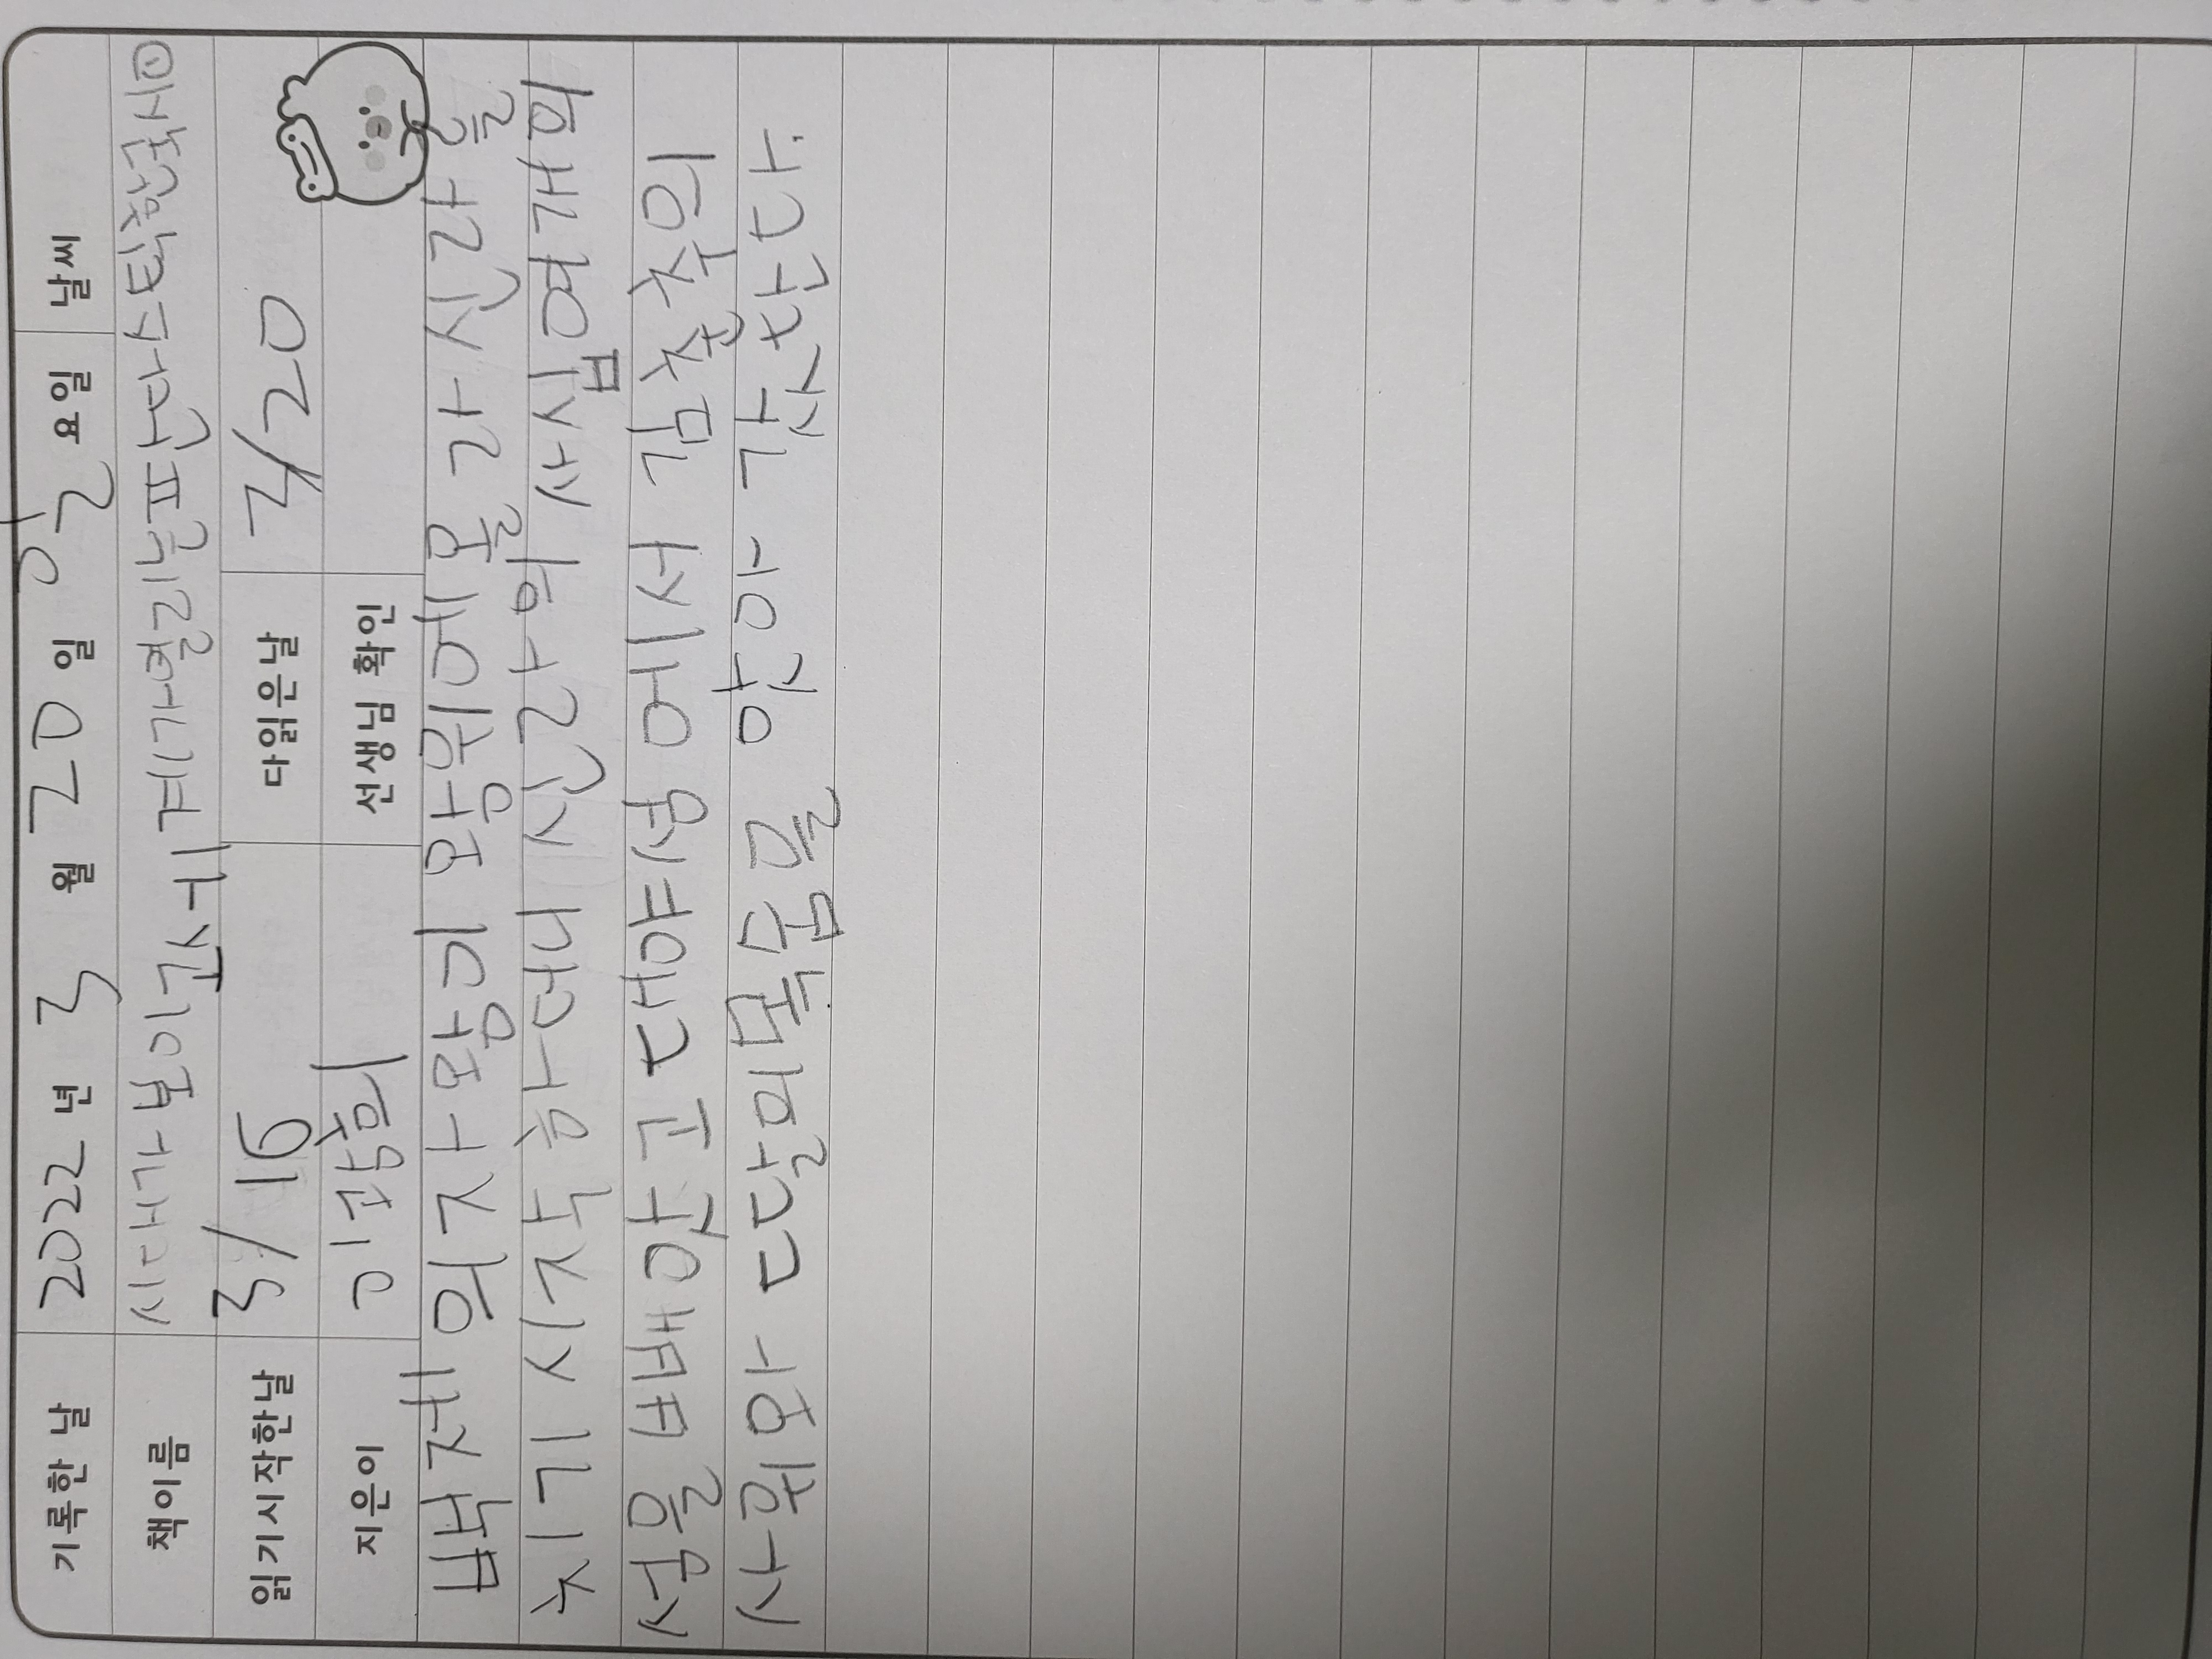 기록한 날 2022 년 3 월 20 일 일 요일 날씨
책이름 시대가 보이고 세계가 열리는 판타스틱 한국사①
읽기시작한날 3/16 다읽은날 3/20
지은이 이광희 선생님 확인
백제 의자왕이 왕위에 올라 신라를
치기 시작하더니 신라의 사십여개의
성을 빼앗고 대야성에서 김춘추의
사위와 딸의 목숨을 앗아 갔단다.